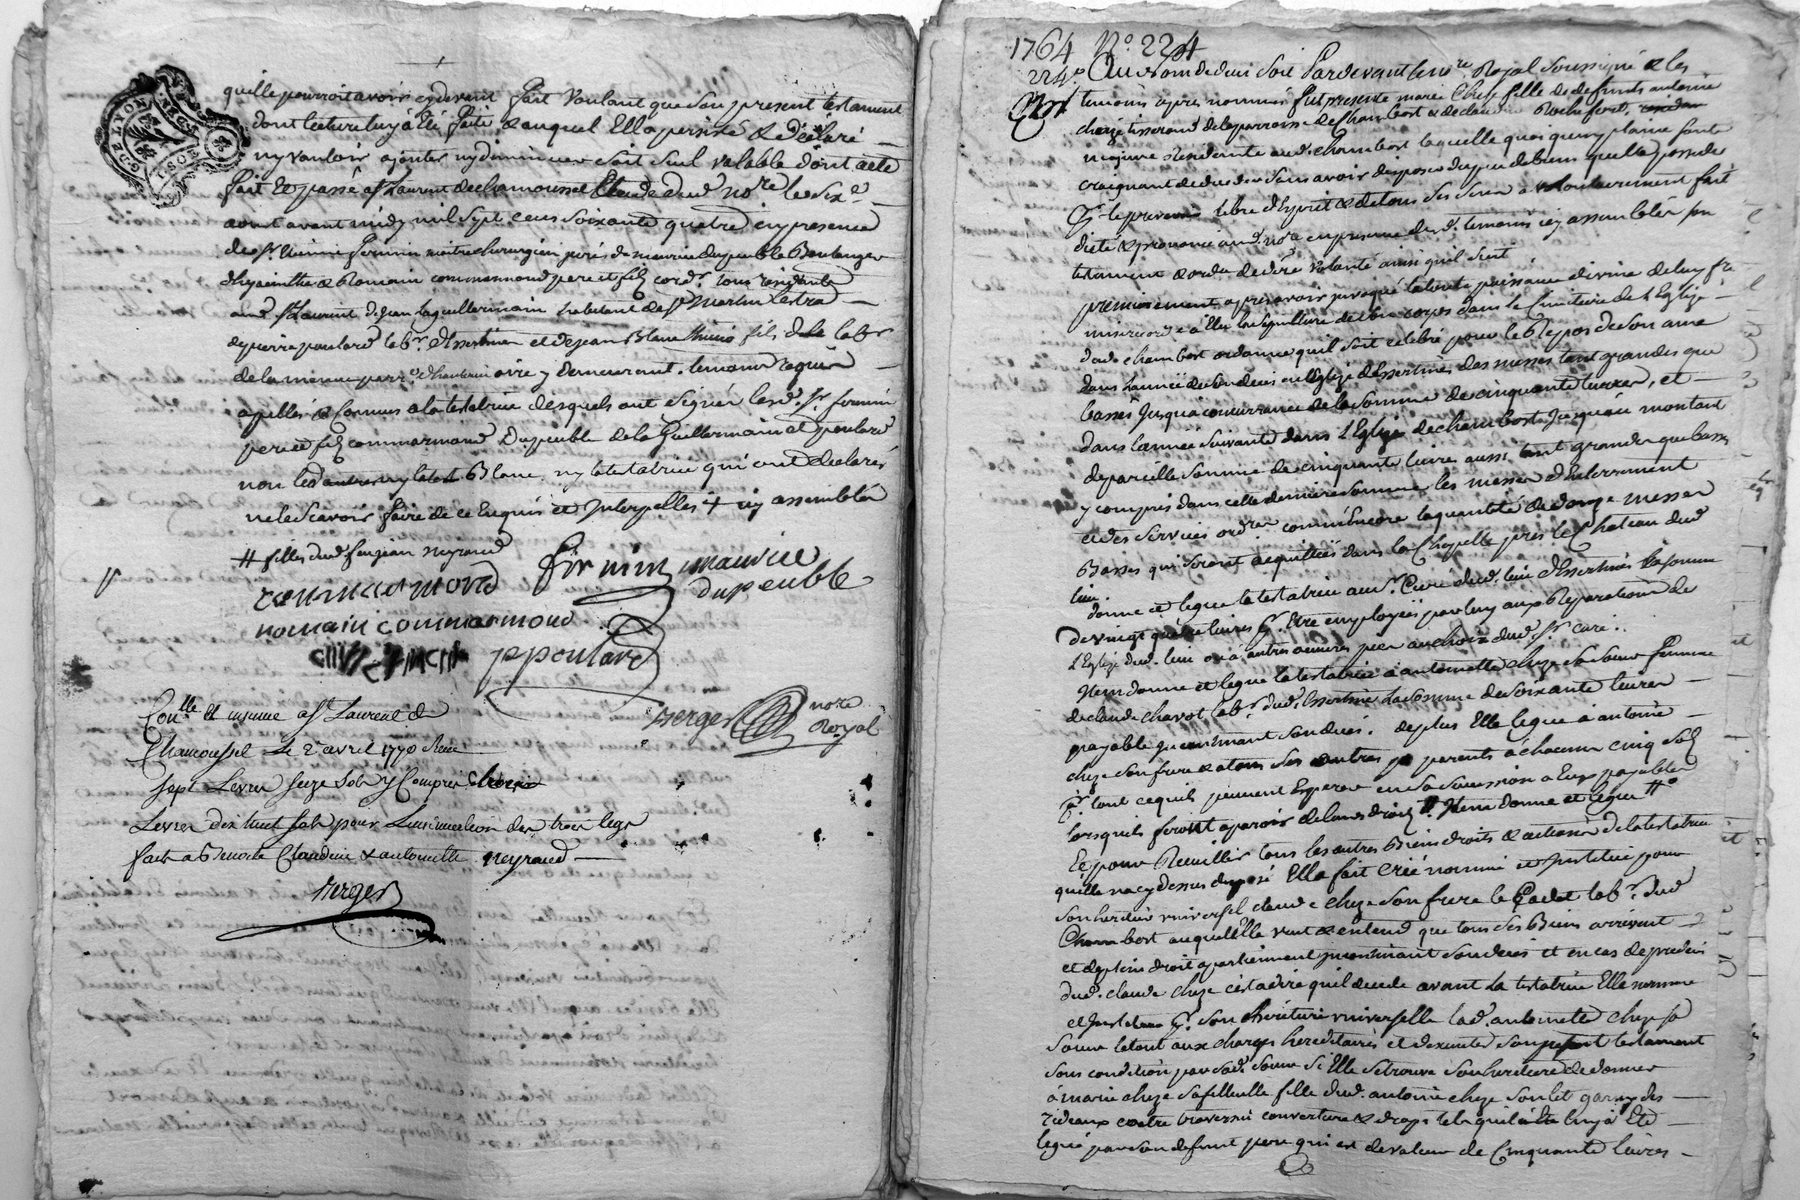 quille pourroit avoir cy devant fait voulant que son present testament
dont lecture luy a été faite & auquel Elle a persisté & déclaré
ny vouloir ajouter ny diminuer soit seul valable dont acte
fait et passé a St Laurent de chamousset Etude dud. nore le six e
aoust avant midy mil sept cens soixante quatre en presence
de sr firmin maitre chirurgien juré de maurice dupeuble Boulanger
d'hyacinthe & Romain commarmond pere et fils cord.rs tous résidants
aud. St Laurent de jean la guillermain habitant de St Martin Lestra
de pierre poulard lab.r d'Essertines et de jean Blanc fils de lab.r
de la meme parr.e y demeurant. temoins requis
apellés & connus a la testatrice desquels ont signés lesd. sr firmin
pere et fils commarmond Dupeuble de la Guillermain et poulard
non led. Blanc ny la testatrice qui ont declarés
ne le scavoir faire de ce Enquis et Interpellés + cy assemblés
# filles dud. feu jean neyraud
firmin maurice
dupeuble
commarmond
romain commarmond
ppoulard
Berger nore
Royal
Con.lle et insinué a St Laurent de
Chamousset Le 2 avril 1770 Reçu
sept Livres seize sols y Compris
Livres dix huit sols pour L'insinuation des trois legs
faits a Benoite Claudine & antoinette neyraud
Berger
LYON
1764 N° 224
224e Au nom de dieu soit Pardevant le nore Royal soussigné & les
temoins apres nommés fut presente marie Cheze fille de defunts antoine
cheze tisserand de la parroisse de Chambost & de claudine Rochefort,
majeure Residente aud. chambost laquelle quoique en pleine santé
craignant de deceder sans avoir disposé du peu de biens quelle possede
libre d'Esprit & de tous ses sens a volontairement fait
dicté & prononcé aud. nore en presence desd. temoins icy assemblés son
testament & ordre de dere volonté ainsi quil suit
premierement apres avoir invoqué la toute puissance divine de luy fre
misericorde a Elu la sepulture de son corps dans le Cimitiere de l'Eglise
dud. chambost ordonne quil soit célébré pour le Repos de son ame
dans l'année de son deces en l'Eglise d'Essertines des messes tant grandes que
basses jusqua concurrance de la somme de cinquante livres, et
dans l'année suivante dans l'Eglise de chambost jusqu'au montant
de pareille somme de cinquante livres aussi tant grandes que basses
y compris dans cette derniere somme les messes d'Enterrement
et des services ord.res comme Encore la quantité de douze messes
Basses qui seront acquittées dans la Chapelle près le Chateau dud.
lieu.
donne et legue la testatrice au sr Curé dud. lieu d'Essertines la somme
de vingt quatre livres pr. Etre employées par luy aux Reparations de
l'Eglise dud. lieu ou a autres œuvres pies au choix dud. sr curé.
Item donne et legue la testatrice a antoinette cheze sa sœur femme
de claude chavot lab.r dud. Essertines la somme de soixante livres
payable incontinant son deces. de plus Elle legue a antoine
cheze son frere & a tous ses autres parents a chacun cinq sols
pr. tout ce quils peuvent Esperer en sa succession a Eux payables
lorsquils feront aparoir de leurs droits # Item donne et legue #
Et pour Recuillir tous les autres Biens droits & actions de la testatrice
quelle na cy dessus disposé Elle fait créé nommé et Institue pour
son heritier universel claude cheze son frere le Cadet lab.r dud.
Chambost auquel Elle veut & entend que tous ses Biens arrivent
et de plein droit apartiennent incontinant son deces et en cas de predeces
dud. claude cheze c'est a dire quil decede avant la testatrice Elle nomme
et Institue pr. son héritiere universelle lad. antoinette cheze sa
sœur le tout aux charges hereditaires et d'executer son present testament
sous condition par sad. sœur si Elle se trouve son heritiere de donner
a marie cheze sa filleulle fille dud. antoine cheze son lit garny des
rideaux couetre traversin couverture & draps tel quil luy a Eté
legué par son defunt pere qui est de valeur de Cinquante livres